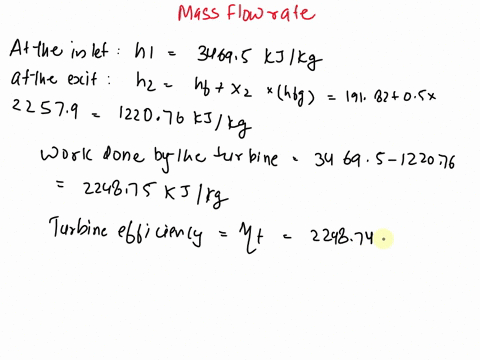 Mass Flow rate
At the inlet : h1 = 3469.5 KJ/kg
at the exit : h2 = hf + x2 * (hfg) = 191.82+0.5x
2257.9 = 1220.76 KJ/kg
Work done by the turbine = 3469.5-1220.76
= 2248.75 KJ/kg
Turbine efficiency = ηt = 2248.74